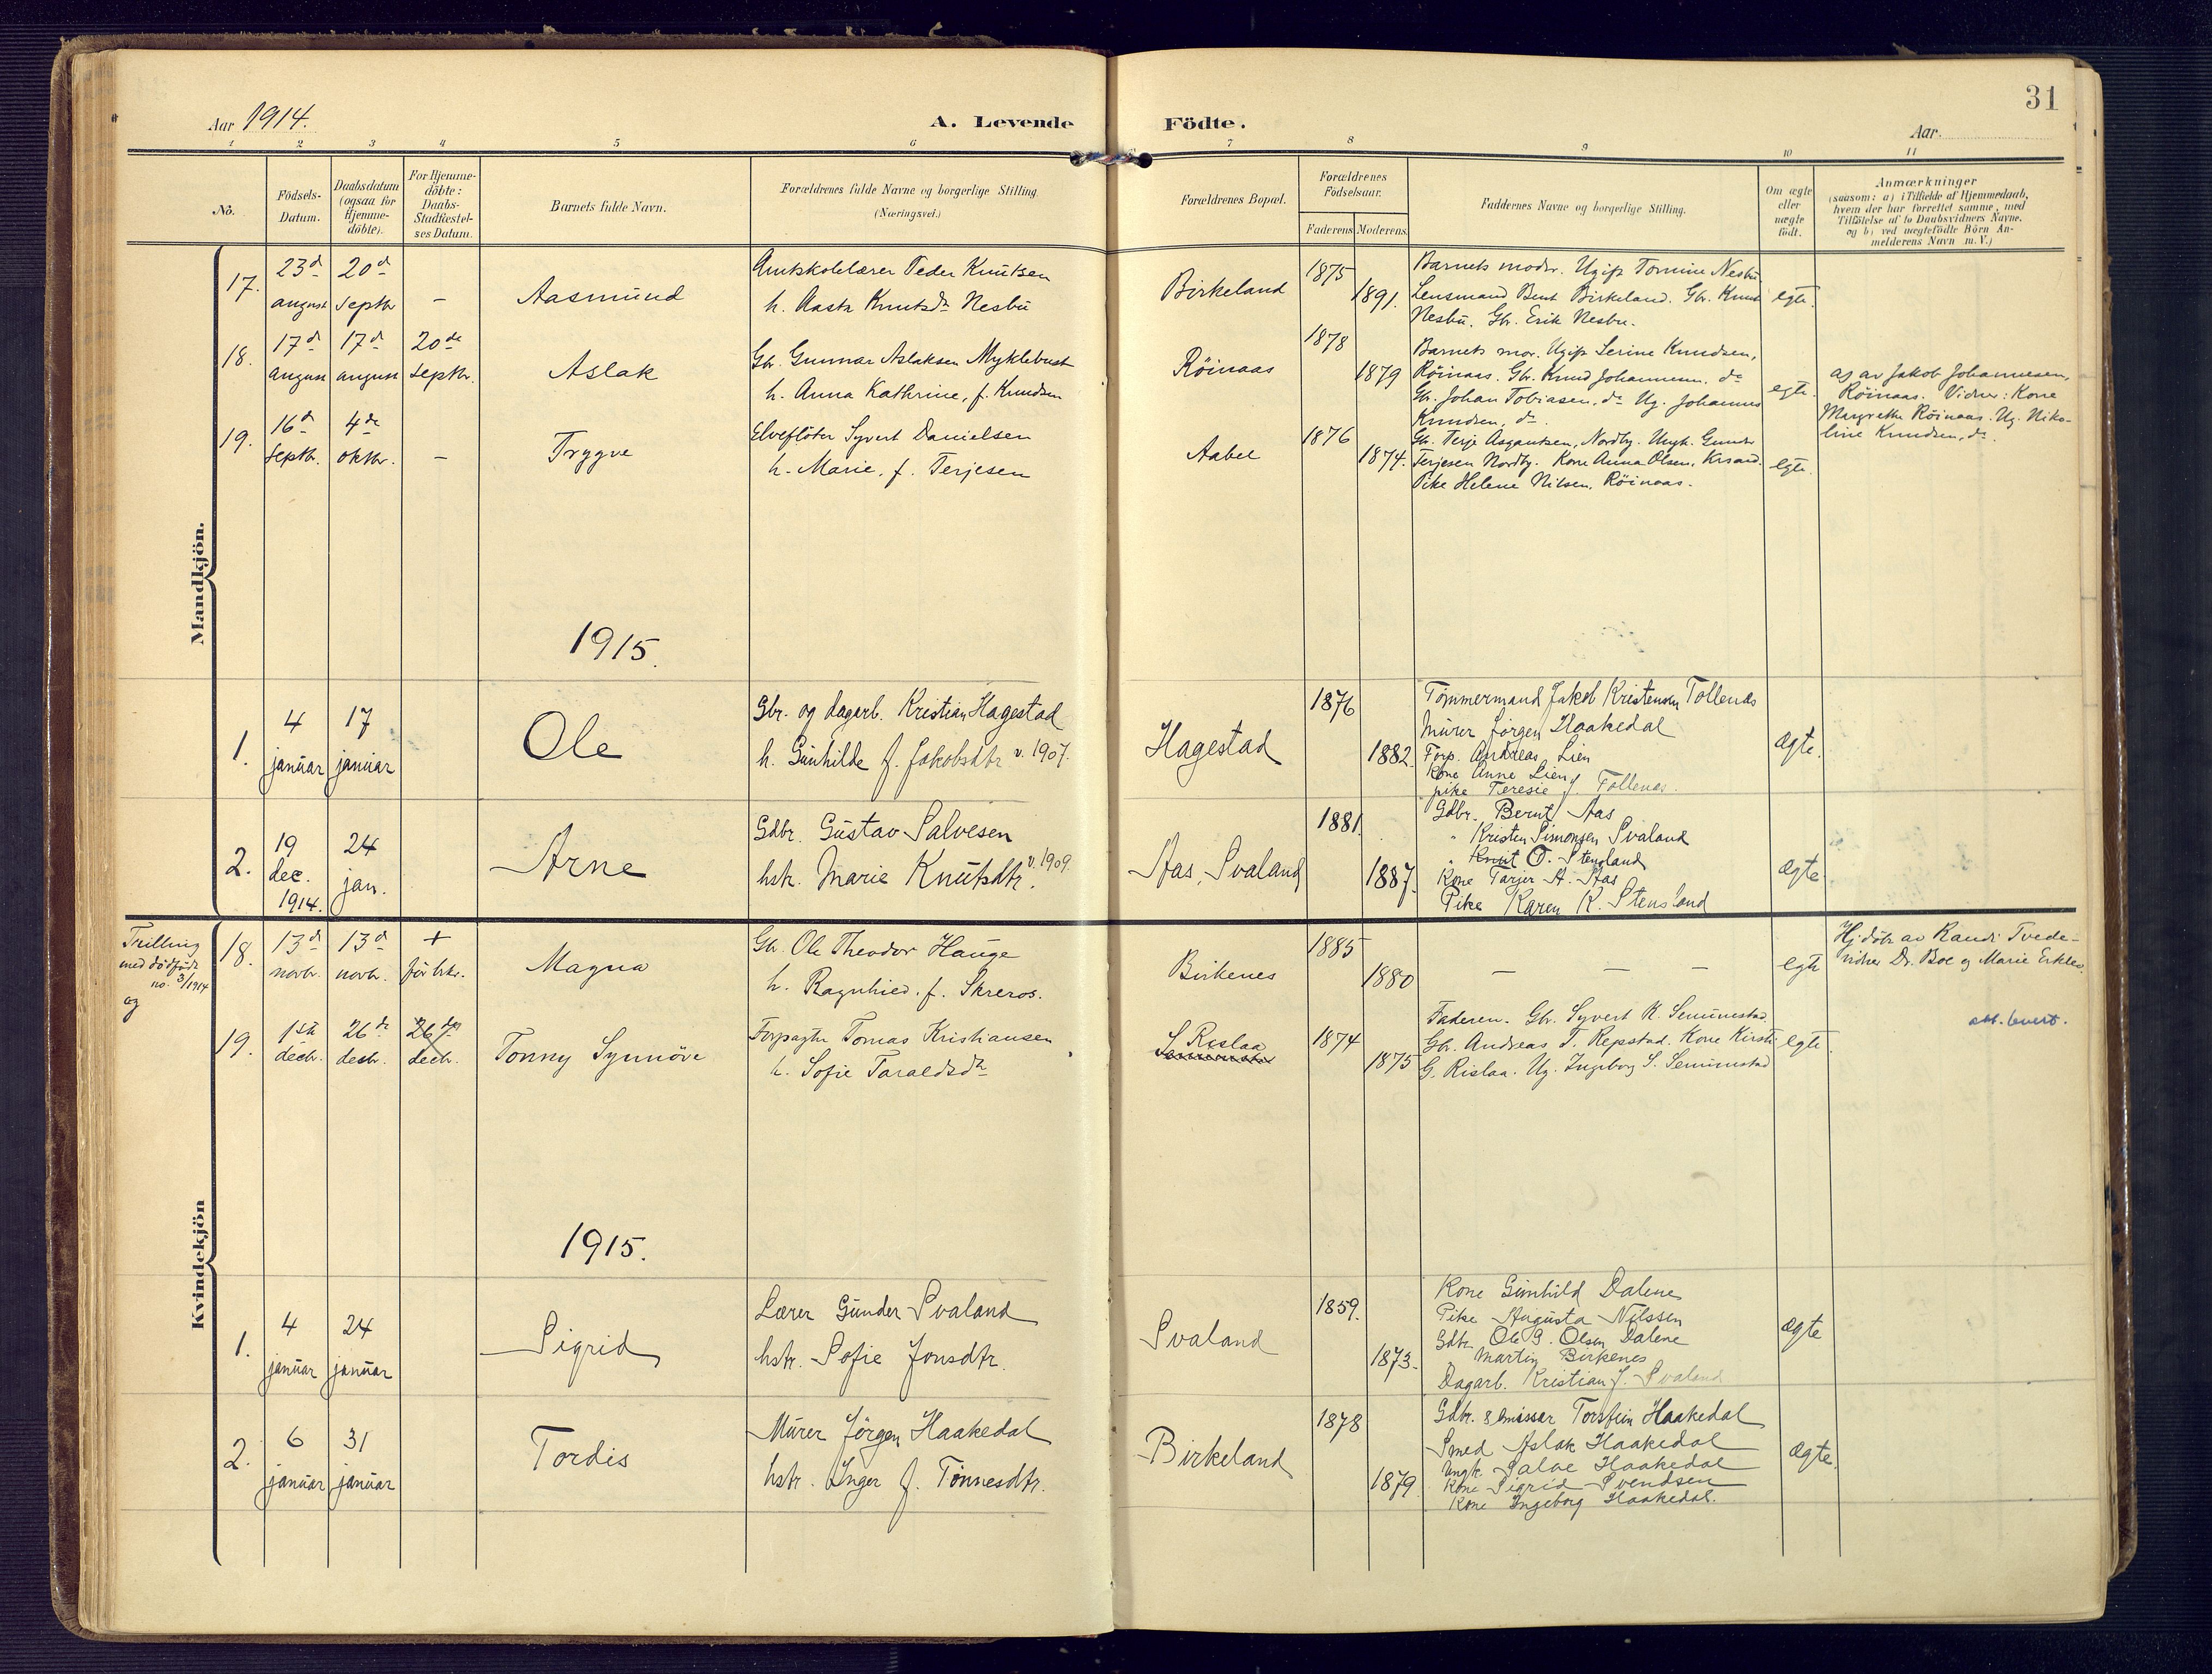 31
Aar 1914.
A. Levende Födte.
Aar
1 2 3 4 5 6 7 8 9 10 11
No.
Födsels-
Datum.
Daabsdatum
(ogsaa for
Hjemme-
döbte).
For Hjemme-
döbte:
Daabs-
Stadfæstel-
ses Datum.
Barnets fulde Navn.
Forældrenes fulde Navne og borgerlige Stilling.
(Næringsvei.)
Forældrenes Bopæl.
Forældrenes
Födselsaar.
Faderens Moderens.
Faddernes Navne og borgerlige Stilling.
Om ægte
eller
uægte
födt.
Anmærkninger
(saasom: a) i Tilfælde af Hjemmedaab,
hvem der har forrettet samme, med
Tilföielse af to Daabsvidners Navne.
og b) ved uægtefödte Börn An-
melderens Navn m. V.)
Mandkjön.
17.
23d
august
20d
septbr
–
Aasmund
Amtskolelærer Peder Knutsen
h. Aasta Knutsdr Nesbu
Birkeland
1875
1891.
Barnets moder. Ugift Tomine Nesbu
Lensmand Bent Birkeland. Gbr. Knut
Nesbu. Gbr. Erik Nesbu.
egte.
18.
17d
august
17d
august
20de
septbr.
Aslak
Gbr. Gunnar Aslaksen Myklebust
h. Anna Kathrine, f. Knudsen
Röinaas
1878
1879
Barnets mor. Ugift Serine Knudsen,
Röinaas. Gbr. Knud Johannesen. do
Gbr. Johan Tobiasen, do Ug. Johannes
Knudsen, do.
egte.
ag av Jakob Johannesen,
Röinaas. Vidner: Kone
Margrethe Röinaas. Ug. Niko-
line Knudsen, do.
19.
16d
septbr.
4de
oktbr.
–
Trygve
Elveflöter Syvert Danielsen
h. Marie, f. Terjesen
Aabel
1876
1874.
Gbr. Terje Asgautsen, Nordby. Ungk. Gunder
Terjesen Nordby. Kone Anna Olsen, Krsand.
Pike Helene Nilsen, Röinaas.
egte.
1915.
1.
4
januar
17
januar
Ole
Gbr. og dagarb. Kristian Hagestad
h. Gunhilde f. Jakobsdtr v. 1907.
Hagestad
1876
1882.
Tømmermand Jakob Kristensen Tollenes
Murer Jørgen Haakedal
Forp. Andreas Lien
Kone Anne Lien
pike Teresie J. Tollenes.
Ægte.
2.
19
dec.
1914.
24
jan.
Arne
Gdbr. Gustav Salvesen
hstr. Marie Knutsdtr. v. 1909.
Aas, Svaland
1881.
1887.
Gdbr. Bernt Aas
" Kristen Simonsen Svaland
" Knut O. Stensland
Kone Tarjer A. Aas
Pike Karen K. Stensland
Ægte
Kvindekjön
Trilling
med dödfödt
no. 3/1914
og
18.
13d
novbr.
13d
novbr.
+
för bkr.
Magna
Gbr. Ole Theodor Hauge
h. Ragnhied. f. Skreros.
Birkenes
1885
1880
– – –
egte
Hj. döbt av Randi Tvede-
vidner Dr. Boe og Marie
19.
1ste
decbr.
26de
decbr.
26de
decbr.
Tonny Synnöve
Forpagter Tomas Kristiansen
h. Sofie Taraldsdr
S. Rislaa
1874
1875
Faderen. Gbr. Syvert K. Senumstad
Gbr. Andreas T. Repstad. Kone Kirsti
G. Rislaa. Ug. Ingeborg S. Senumstad
egte.
att. levert.
1915.
1.
4
januar
24
januar
Sigrid
Lærer Gunder Svaland
hstr. Sofie Jonsdtr.
Svaland
1859.
1873.
Kone Gunhild Dalene
Pike Augusta Nilssen
Gdbr. Ole G. Olsen Dalene
Martin Birkenes
Dagarb. Kristian J. Svaland
Ægte
2.
6
januar
31
januar
Tordis
Murer Jörgen Haakedal
hstr. Inger f. Tönnesdtr.
Birkeland
1878
1879
Gdbr. Torstein Haakedal
Smed Aslak Haakedal
Ungk. Salve Haakedal
Kone Sigrid Svendsen
Kone Ingeborg Haakedal.
Ægte.